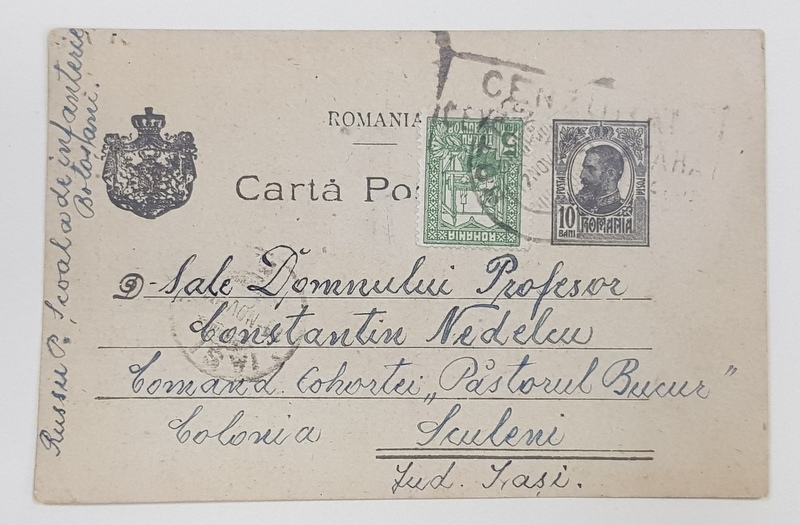 Russu P., Scoala de infanterie
Botoșani.
ROMANIA
Cartă Pos
ROMANIA
10
BANI
ROMANIA
D-Sale Domnului Profesor
Constantin Nedelcu
Comand. Cohortei „Păstorul Bucur”
Colonia Sculeni
Jud. Iași.